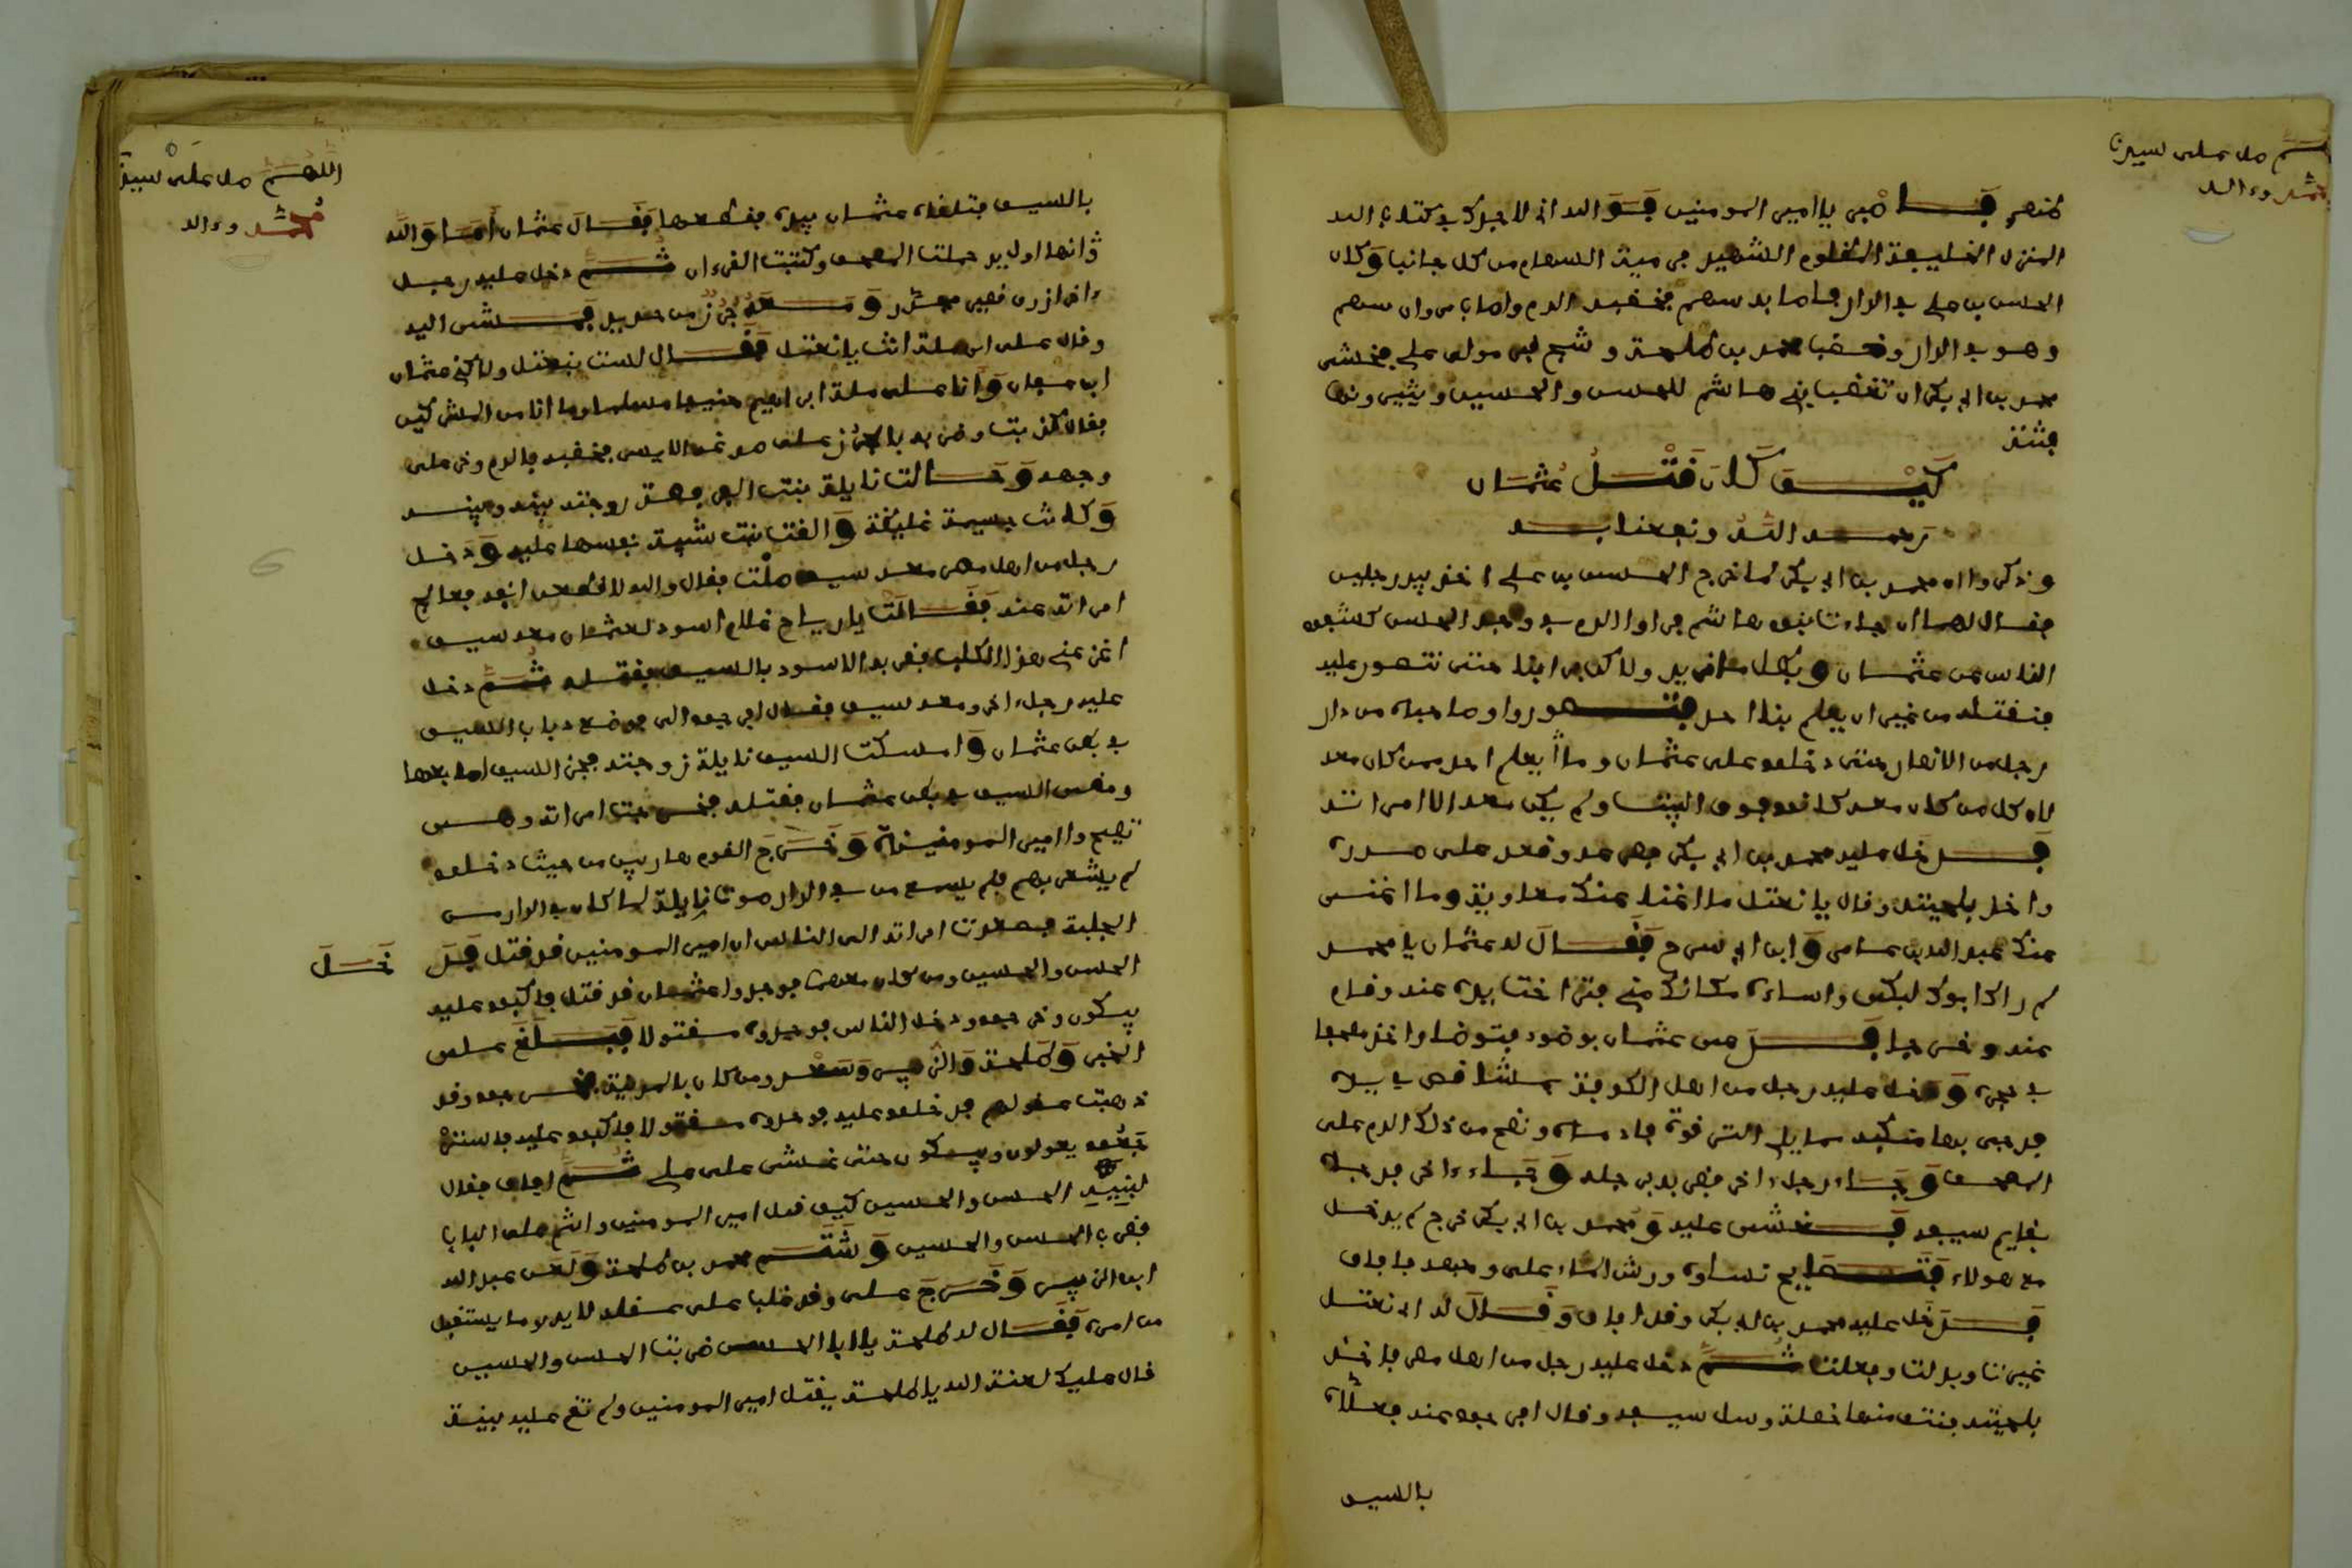 اللهم صل على سيدنا
محمد وءاله
المنزل الخليفة المظلوم الشهيد فرميه السهام من كل جانب وكان
الحسن بن علي في الدار فاصابه سهم فخضبه الدم واصاب مروان سهم
وهو في الدار وخضب محمد بن طلحة وشج مولى علي فخشي
محمد بن ابي بكر ان تغضب بني هاشم للحسن والحسين ويثيرونها
فتنة
كيف كان قتل عثمان
رحمه الله ونفعنا به
وذكروا ان محمد بن ابي بكر لما خرج الحسن بن علي اخذ بيد رجلين
فقال لهما ان جاءت بنو هاشم فراوا الدم في وجه الحسن كشفوا
الناس عن عثمان وبطل ما نريد ولاكن مر ابنا حتى نتصور عليه
فنقتله من غير ان يعلم بنا احد فتصوروا وصاحباه من دار
رجل من الانصار حتى دخلوا على عثمان وما يعلم احد ممن كان معه
لان كل من كان معه كانوا فوق البيت ولم يكن معه الا امراته
فدخل عليه محمد بن ابي بكر فصرعه وقعد على صدره
واخذ بلحيته وقال يا نعثل ما اغنا عنك معاوية وما اغنى
عنك عبد الله بن عامر وابن ابي سرح فقال له عثمان يا محمد
لو راك ابوك لبكى واساءه مكانك مني فتراخت يده عنه وقام
عنه وخرج فدعى عثمان بوضوء فتوضا واخذ مصحفا
في حجره ودخل عليه رجل من اهل الكوفة بمشاقص في يده
فوجى بها منكبه مما يلي الترقوة فادماه ونضح من ذلك الدم على
المصحف وجاء رجل ءاخر فضربه برجله وجاء ءاخر فوجاه
بقايم سيفه فغشي عليه ومحمد بن ابي بكر خرج لم يدخل
مع هولاء فتصايح نساوه ورش الماء على وجهه فافاق
فدخل عليه محمد بن ابي بكر وقد افاق وقال له اي نعثل
غيرت وبدلت وفعلت ثم دخل عليه رجل من اهل مصر فاخذ
بلحيته فنتف منها خصلة وسل سيفه وقال افرجوا عنه فعلاه
بالسيف
اللهم صل على سيدنا
محمد وءاله
بالسيف فتلقاه عثمان بيده فقطعها فقال عثمان اما والله
انها اول يد خطت المصحف وكتبت القرءان ثم دخل عليه رجل
ءاخر ازرق قصير مجدر ومعه جرز من حديد فمشى اليه
وقال على اي ملة انت يا نعثل فقال لست بنعثل ولاكني عثمان
ابن عفان وانا على ملة ابراهيم حنيفا مسلما وما انا من المشركين
فقال كذبت وضربه بالجرز على صدغه الايسر فخضبه بالدم وخر على
وجهه وحالت نايلة بنت الفرافصة زوجته بينه وبينه
وكانت جسيمة غليظة والقت بنت شيبة نفسها عليه ودخل
رجل من اهل مصر معه سيف صلت فقال والله لاقطعن انفه فعالج
امراته عنه فقالت يا رباح غلام اسود لعثمان معه سيف
اغن عني هذا الكلب فضربه الاسود بالسيف فقتله ثم دخل
عليه رجل ءاخر ومعه سيف فقال افرجوا لي فوضع ذباب السيف
في بطن عثمان وامسكت السيف نايلة زوجته فحز السيف اصابعها
ومضى السيف في بطن عثمان فقتله فخرجت امراته وهي
تصيح وا امير المومنيناه وخرج القوم هاربين من حيث دخلوا
لم يشعر بهم فلم يسمع من في الدار صوت نايلة لما كان في الدار من
الجلبة فصعدت امراته الى الناس ان امير المومنين قد قتل فدخل
الحسن والحسين ومن كان معهما فوجدوا عثمان قد قتل فاكبوا عليه
يبكون وخرجوا ودخل الناس فوجدوه مقتولا فبلغ علي
الخبر وطلحة والزبير وسعد ومن كان بالمدينة فخرجوا وقد
ذهبت عقولهم فدخلوا عليه فوجدوه مقتولا فاكبوا عليه فاسترجعوا
يعولون ويبكون حتى غشي على علي ثم افاق فقال
لبنيه الحسن والحسين كيف قتل امير المومنين وانتم على الباب
فضرب الحسن والحسين وشتم محمد بن طلحة ولعن عبد الله
ابن الزبير وخرج علي وقد غلب على عقله لا يدري ما يستقبل
من امره فقال له طلحة يا ابا الحسن ضربت الحسن والحسين
قال عليك لعنة الله يا طلحة يقتل امير المومنين ولم تقم عليه بينة